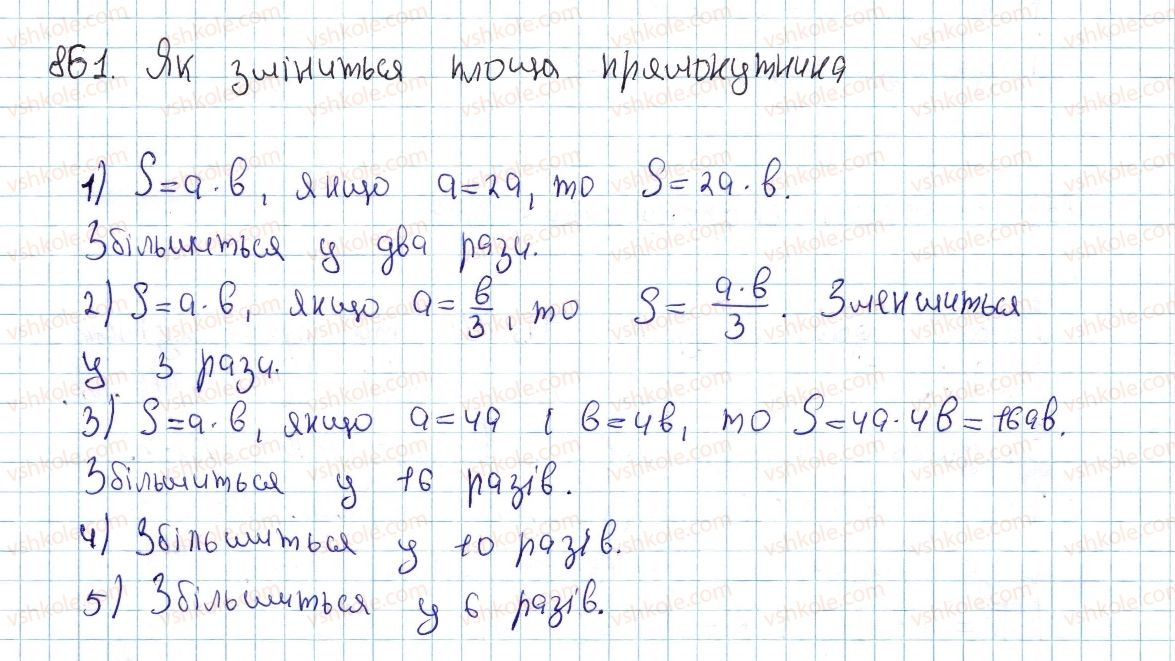 861. Як зміниться площа прямокутника
1) S=a·b, якщо a=2a, то S=2a·b.
Збільшиться у два рази.
2) S=a·b, якщо a=b/3, то S= a·b/3. Зменшиться
у 3 рази.
3) S=a·b, якщо a=4a і b=4b, то S=4a·4b=16ab.
Збільшиться у 16 разів.
4) Збільшиться у 10 разів.
5) Збільшиться у 6 разів.